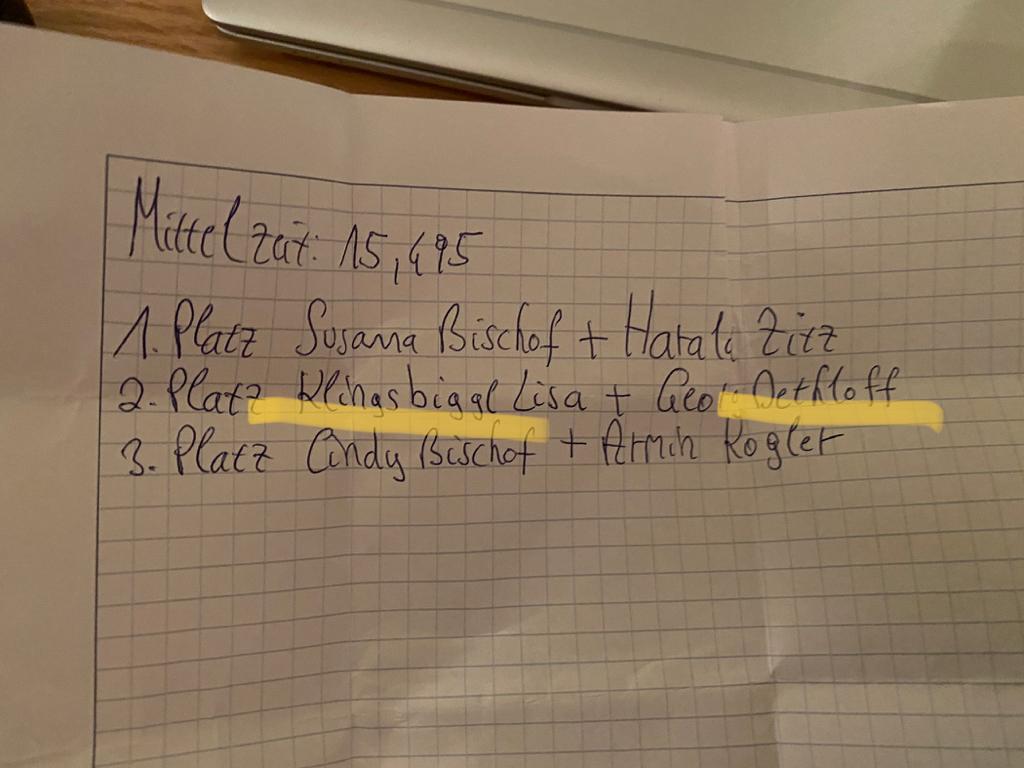 Mittelzeit: 15,495
1. Platz Susanna Bischof + Harald Zitz
2. Platz Klingsbiggl Lisa + Georg Dethloff
3. Platz Cindy Bischof + Armin Kogler